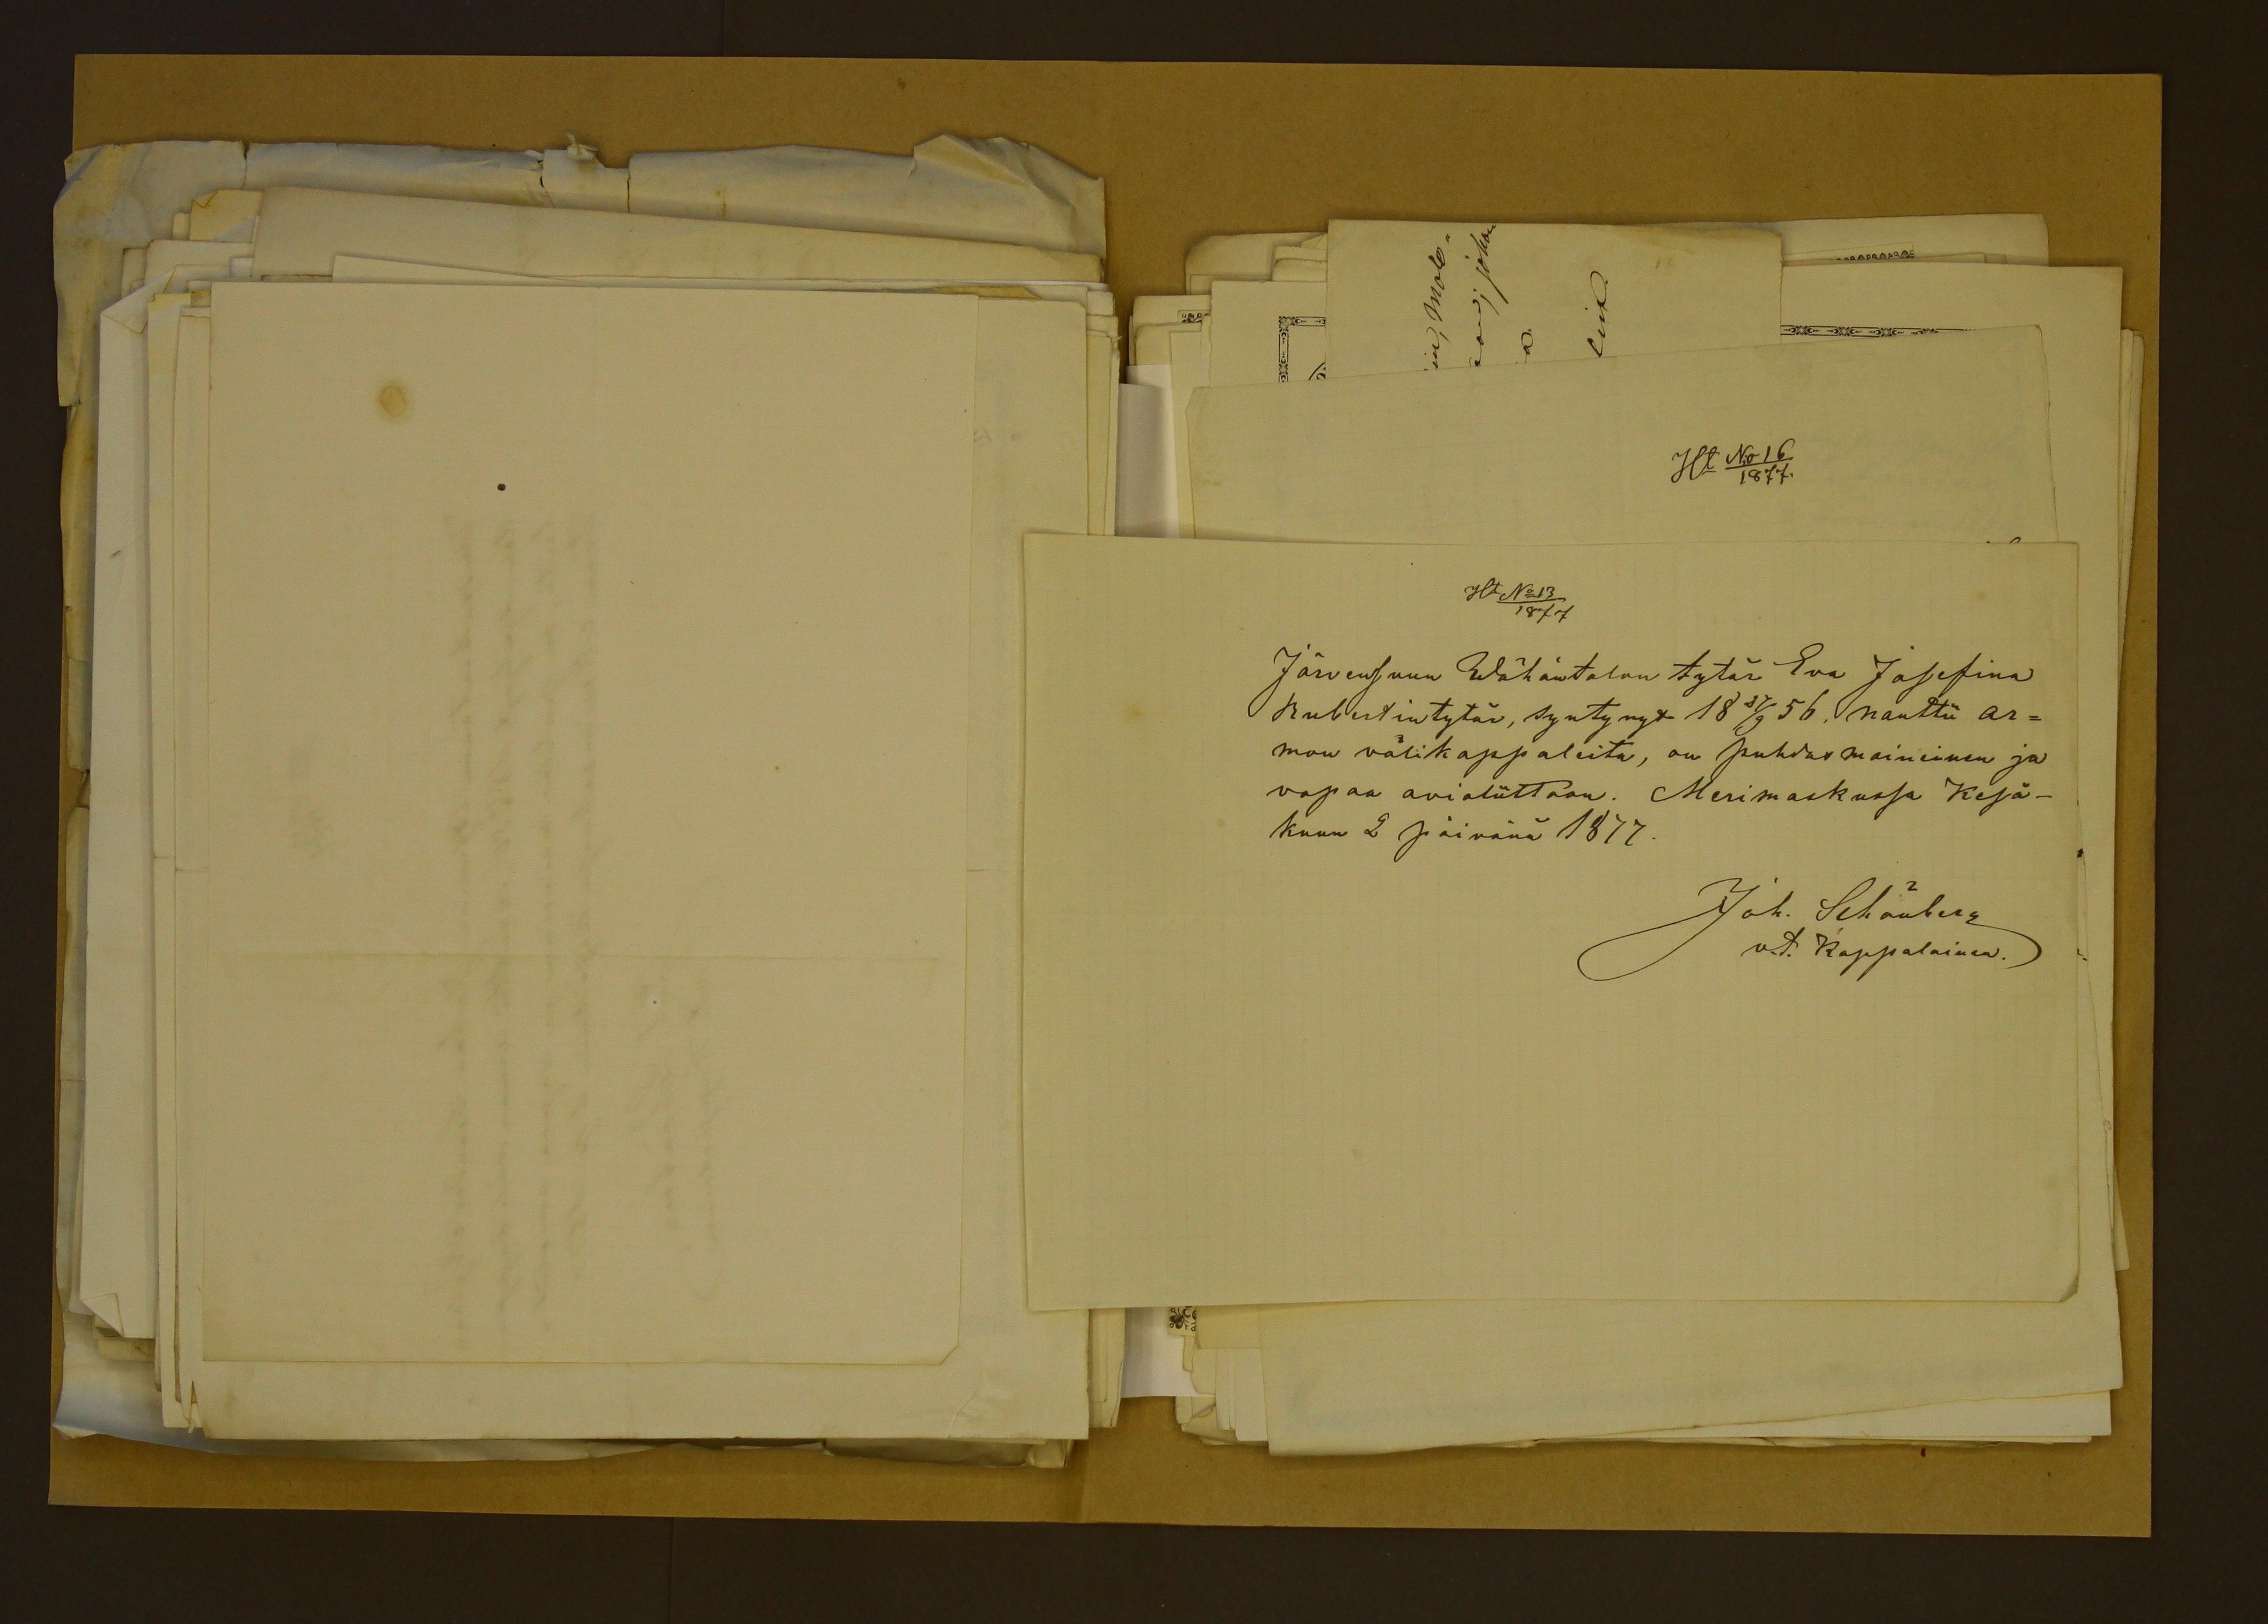 in, mole-
johon
a
Ht No 16
1877.
Ht No 13
1877
Järvensuun Wähäntalon tytär Eva Josefina
Kubertintytär, syntynyt 18 27/9 56. nauttii ar=
mon välikappaleita, on puhdasmaineinen ja
vapaa avioliittoon. Merimaskussa Kesä-
kuun 2 päivänä 1877.
Joh. Schönberg
v.t. Kappalainen.